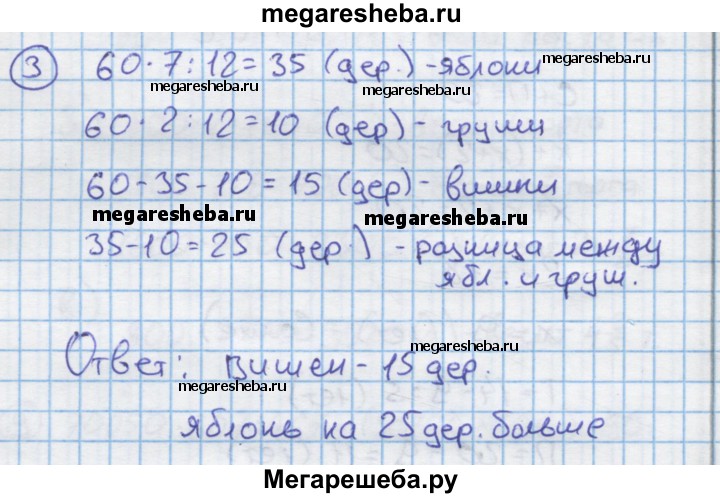 megaresheba.ru
3 60·7:12=35 (дер.) - яблони
megaresheba.ru
megaresheba.ru
megaresheba.ru
60·2:12=10 (дер) - груши
60-35-10=15 (дер) - вишни
megaresheba.ru
megaresheba.ru
35-10=25 (дер.) - разница между
ябл. и груш.
Ответ: вишен - 15 дер.
megaresheba.ru
megaresheba.ru
яблонь на 25 дер. больше
Мегарешеба.ру